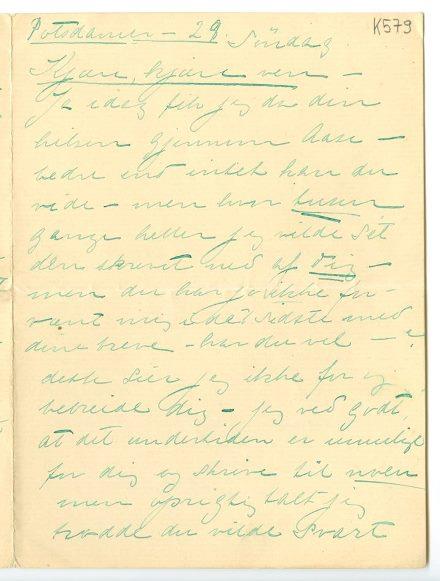 K579
Potsdamer – 29. Søndag
Kjære, kjære ven –
Ja idag fik jeg da din
hilsen gjennem Aase –
bedre end intet kan du
vide – men hvor tusen
gange heller jeg vilde set
den skrevet ned af dig –
men du har jo ikke for-
vænt mig i det sidste med
dine breve – har du vel – ?
dette sier jeg ikke for og
bebreide dig – jeg ved godt,
at det undertiden er umuligt
for dig og skrive til noen
men oprigtig talt jeg
trodde du vilde svart